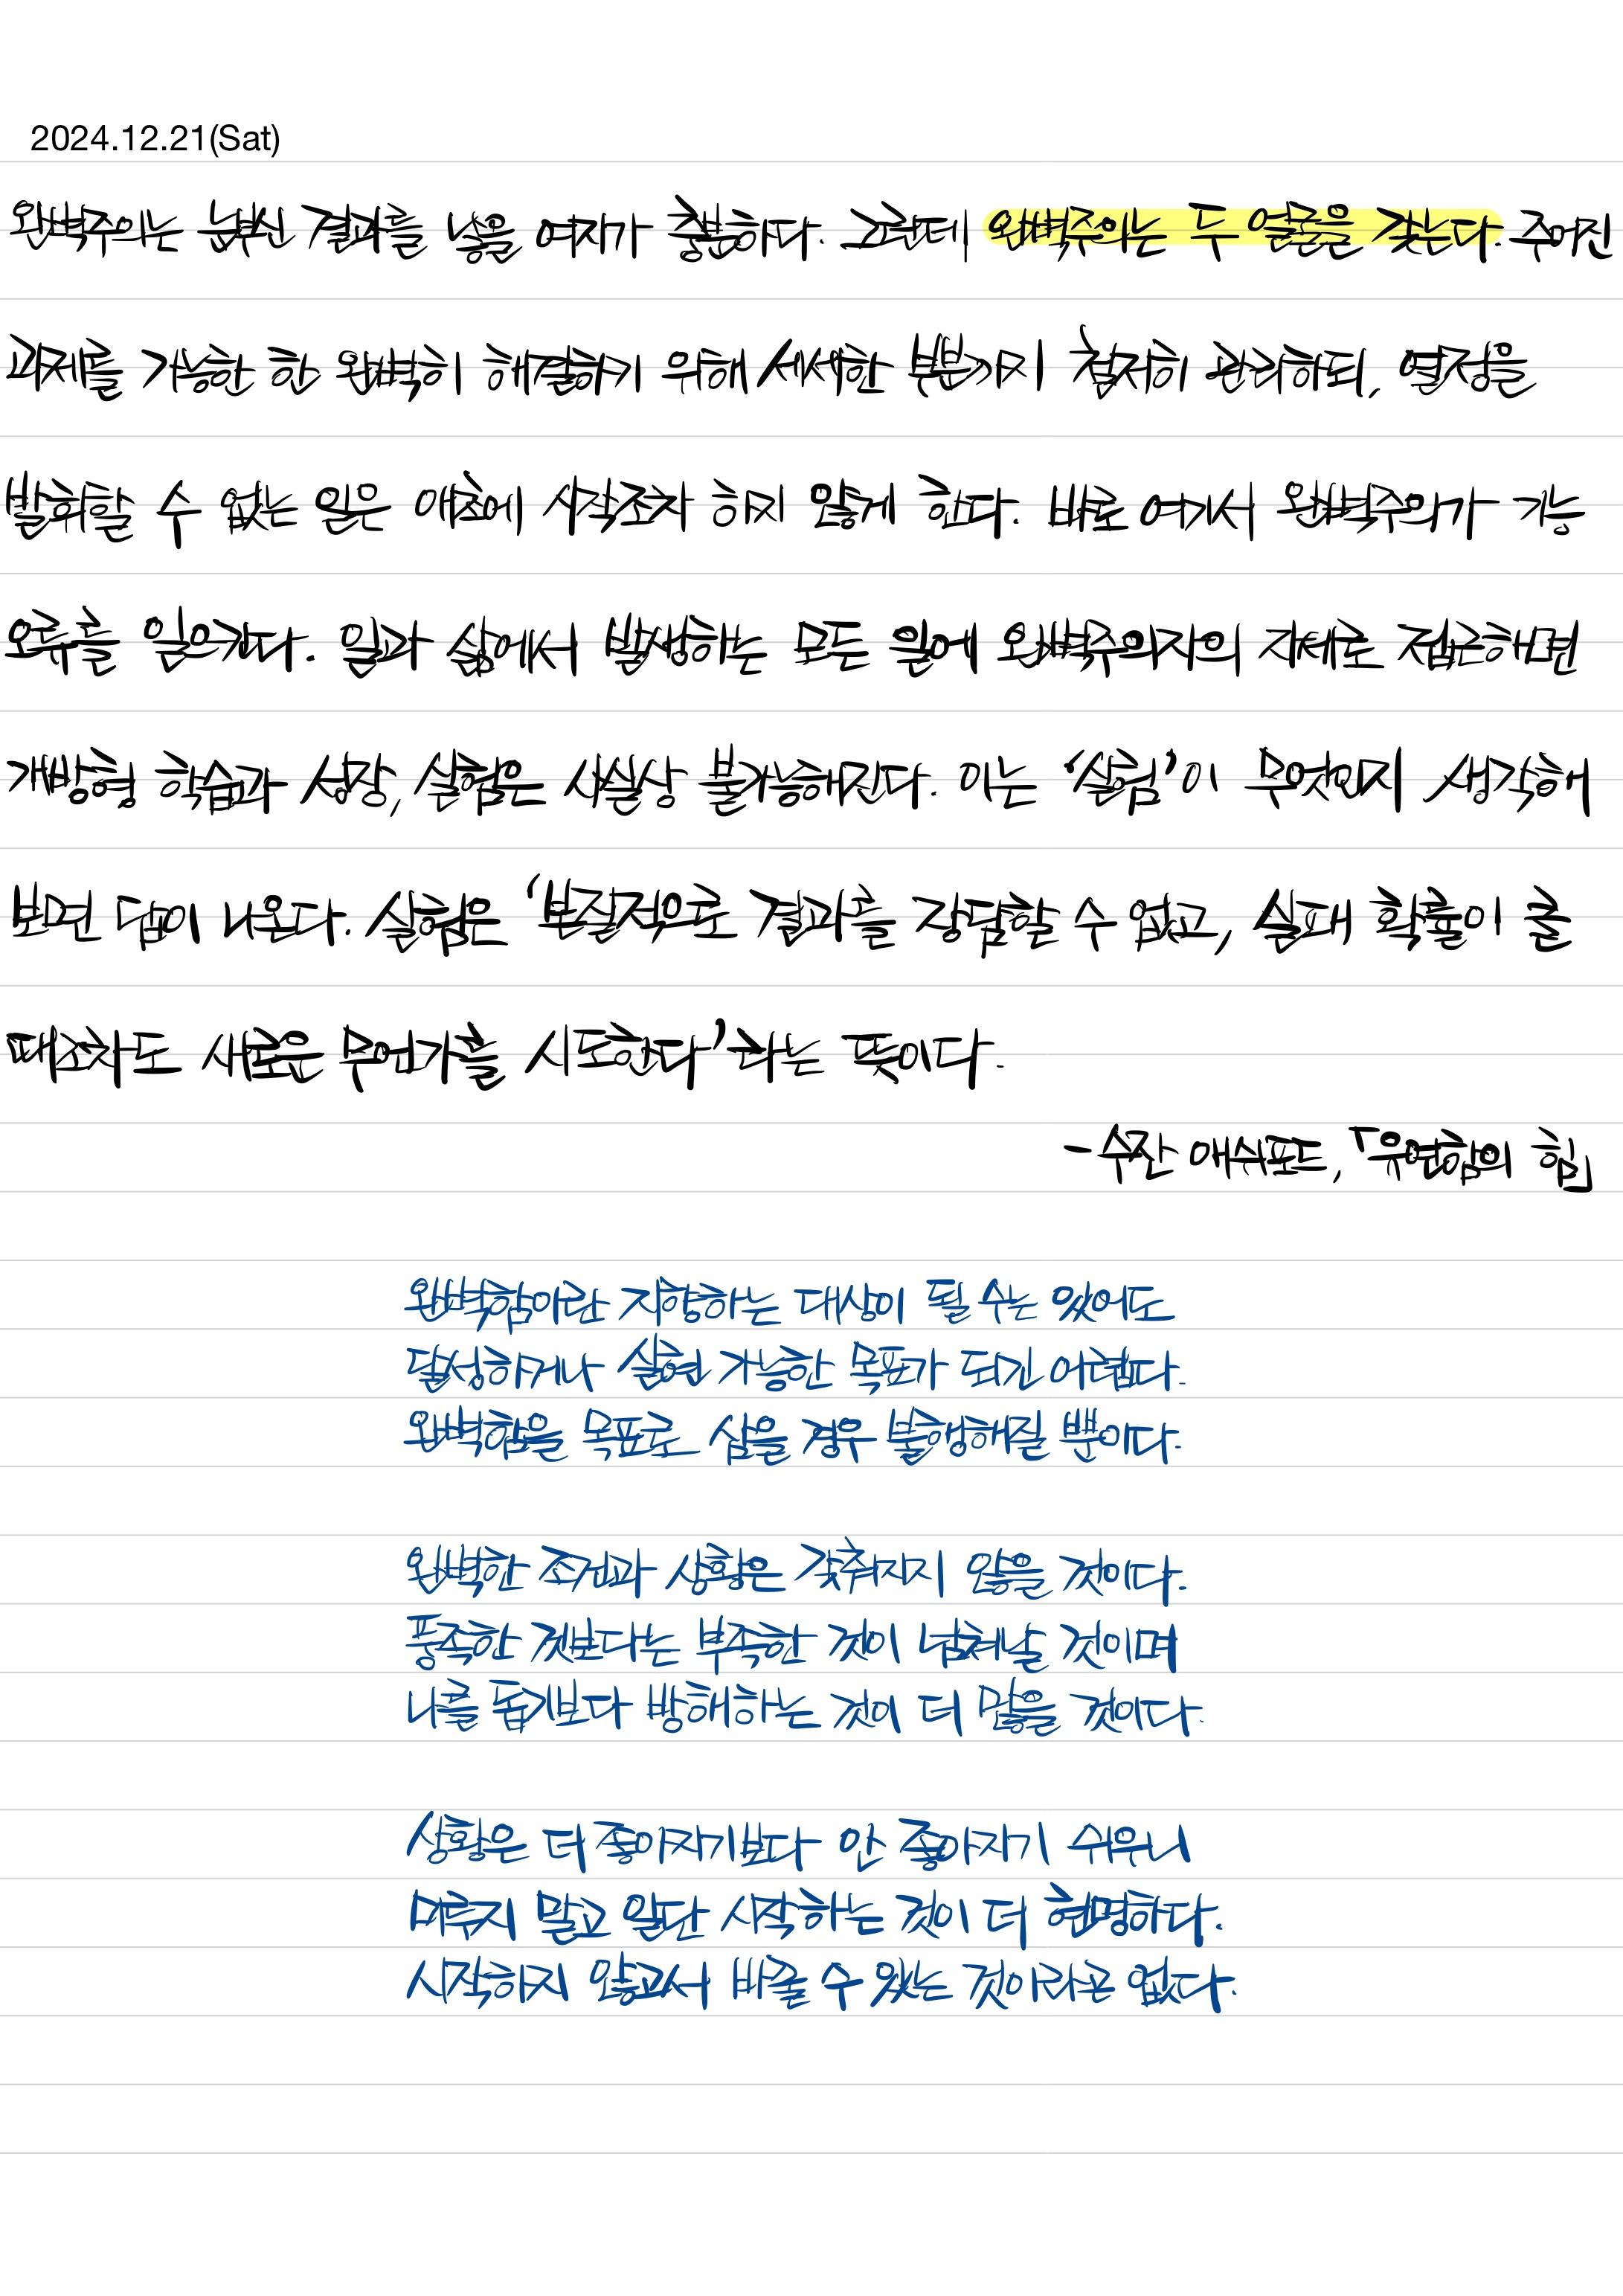 2024.12.21(Sat)
완벽주의는 눈부신 결과를 낳을 여지가 충분하다. 그런데 완벽주의는 두 얼굴을 갖는다. 주어진
과제를 가능한 한 완벽히 해결하기 위해 세세한 부분까지 철저히 관리하되, 열정을
발휘할 수 없는 일은 애초에 시작조차 하지 않게 한다. 바로 여기서 완벽주의가 기능
오류를 일으킨다. 일과 삶에서 발생하는 모든 일에 완벽주의자의 자세로 접근하면
개방형 학습과 성장, 실험은 사실상 불가능해진다. 이는 '실험'이 무엇인지 생각해
보면 답이 나온다. 실험은 '본질적으로 결과를 장담할 수 없고, 실패 확률이 클
때조차도 새로운 무언가를 시도한다'라는 뜻이다.
- 수잔 애쉬포드, 「유연함의 힘」
완벽함이란 지향하는 대상이 될 수는 있어도
달성하거나 실현 가능한 목표가 되긴 어렵다.
완벽함을 목표로 삼을 경우 불행해질 뿐이다.
완벽한 조건과 상황은 갖춰지지 않을 것이다.
풍족한 것보다는 부족한 것이 넘쳐날 것이며
나를 돕기보다 방해하는 것이 더 많을 것이다.
상황은 더 좋아지기보다 안 좋아지기 쉬우니
미루지 말고 일단 시작하는 것이 더 현명하다.
시작하지 않고서 바꿀 수 있는 것이라곤 없다.